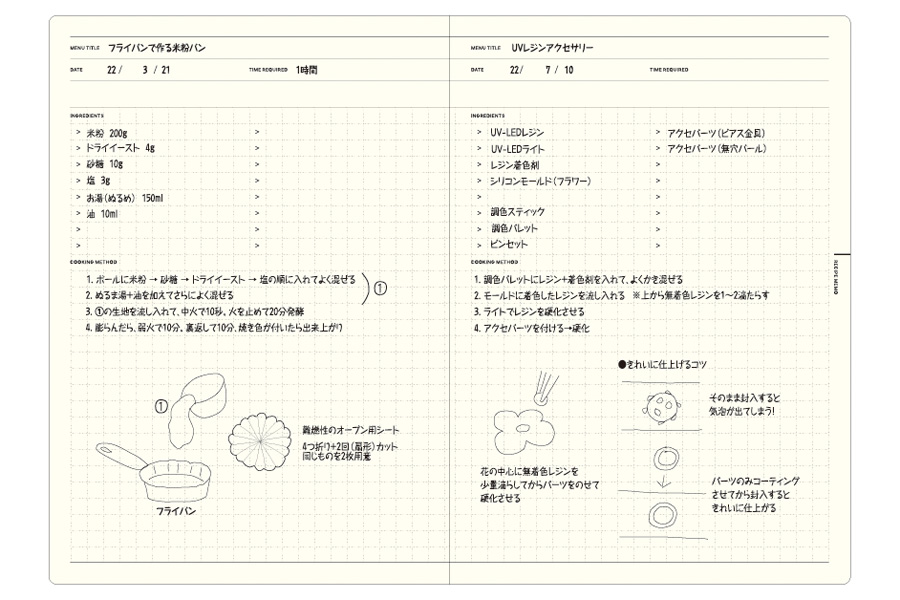 MENU TITLE フライパンで作る米粉パン
DATE 22 / 3 / 21 TIME REQUIRED 1時間
INGREDIENTS
> 米粉 200g >
> ドライイースト 4g >
> 砂糖 10g >
> 塩 3g >
> お湯(ぬるめ) 150ml >
> 油 10ml >
> >
> >
COOKING METHOD
1. ボールに米粉 → 砂糖 → ドライイースト → 塩の順に入れてよく混ぜる
2. ぬるま湯+油を加えてさらによく混ぜる
①
3. ①の生地を流し入れて、中火で10秒、火を止めて20分発酵
4. 膨らんだら、弱火で10分、裏返して10分、焼き色が付いたら出来上がり
①
難燃性のオーブン用シート
4つ折り+2回(扇形)カット
同じものを2枚用意
フライパン
MENU TITLE UVレジンアクセサリー
DATE 22/ 7 / 10 TIME REQUIRED
INGREDIENTS
> UV-LEDレジン > アクセパーツ(ピアス金具)
> UV-LEDライト > アクセパーツ(無穴パール)
> レジン着色剤 >
> シリコンモールド(フラワー) >
> >
> 調色スティック >
> 調色パレット >
> ピンセット >
COOKING METHOD
1. 調色パレットにレジン+着色剤を入れて、よくかき混ぜる
2. モールドに着色したレジンを流し入れる ※上から無着色レジンを1〜2滴たらす
3. ライトでレジンを硬化させる
4. アクセパーツを付ける→硬化
●きれいに仕上げるコツ
そのまま封入すると
気泡が出てしまう!
花の中心に無着色レジンを
少量滴らしてからパーツをのせて
硬化させる
パーツのみコーティング
させてから封入すると
きれいに仕上がる
RECIPE MEMO